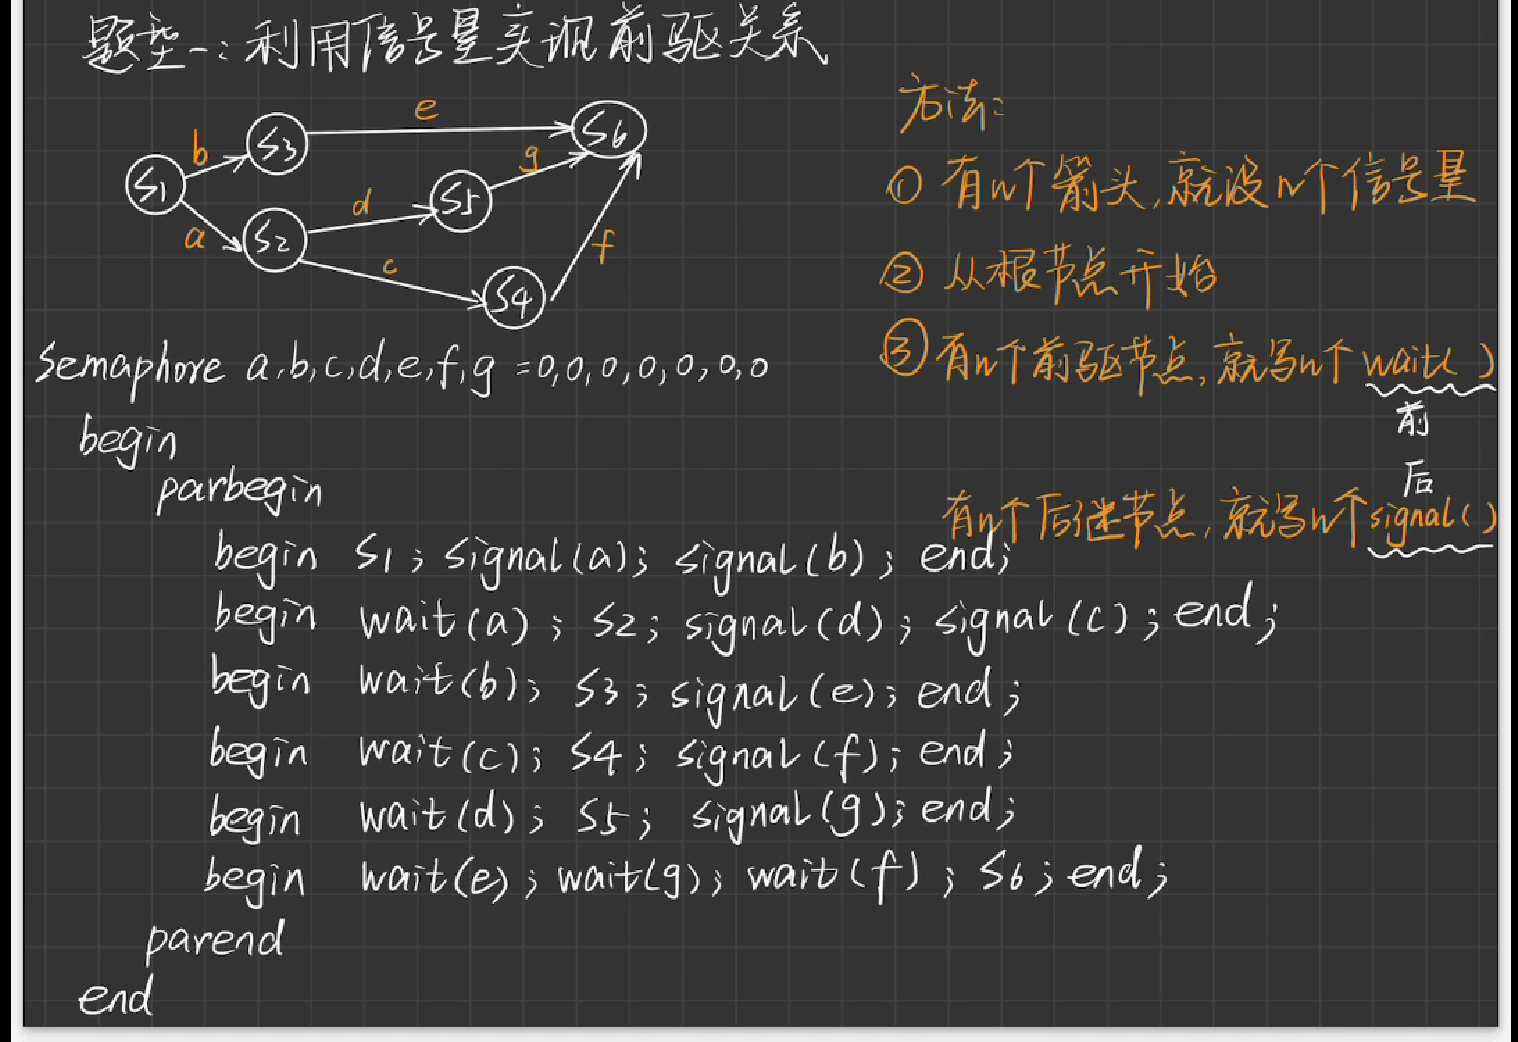 题型一:利用信号量实现前驱关系
e
b
S3
S6
g
S1
d
S5
a
S2
c
f
S4
方法:
① 有n个箭头,就设n个信号量
② 从根节点开始
③ 有n个前驱节点,就写n个wait( )
前
后
有n个后继节点,就写n个signal( )
semaphore a,b,c,d,e,f,g =0,0,0,0,0,0,0
begin
parbegin
begin S1; signal(a); signal(b); end;
begin wait(a); S2; signal(d); signal(c); end;
begin wait(b); S3; signal(e); end;
begin wait(c); S4; signal(f); end;
begin wait(d); S5; signal(g); end;
begin wait(e); wait(g); wait(f); S6; end;
parend
end